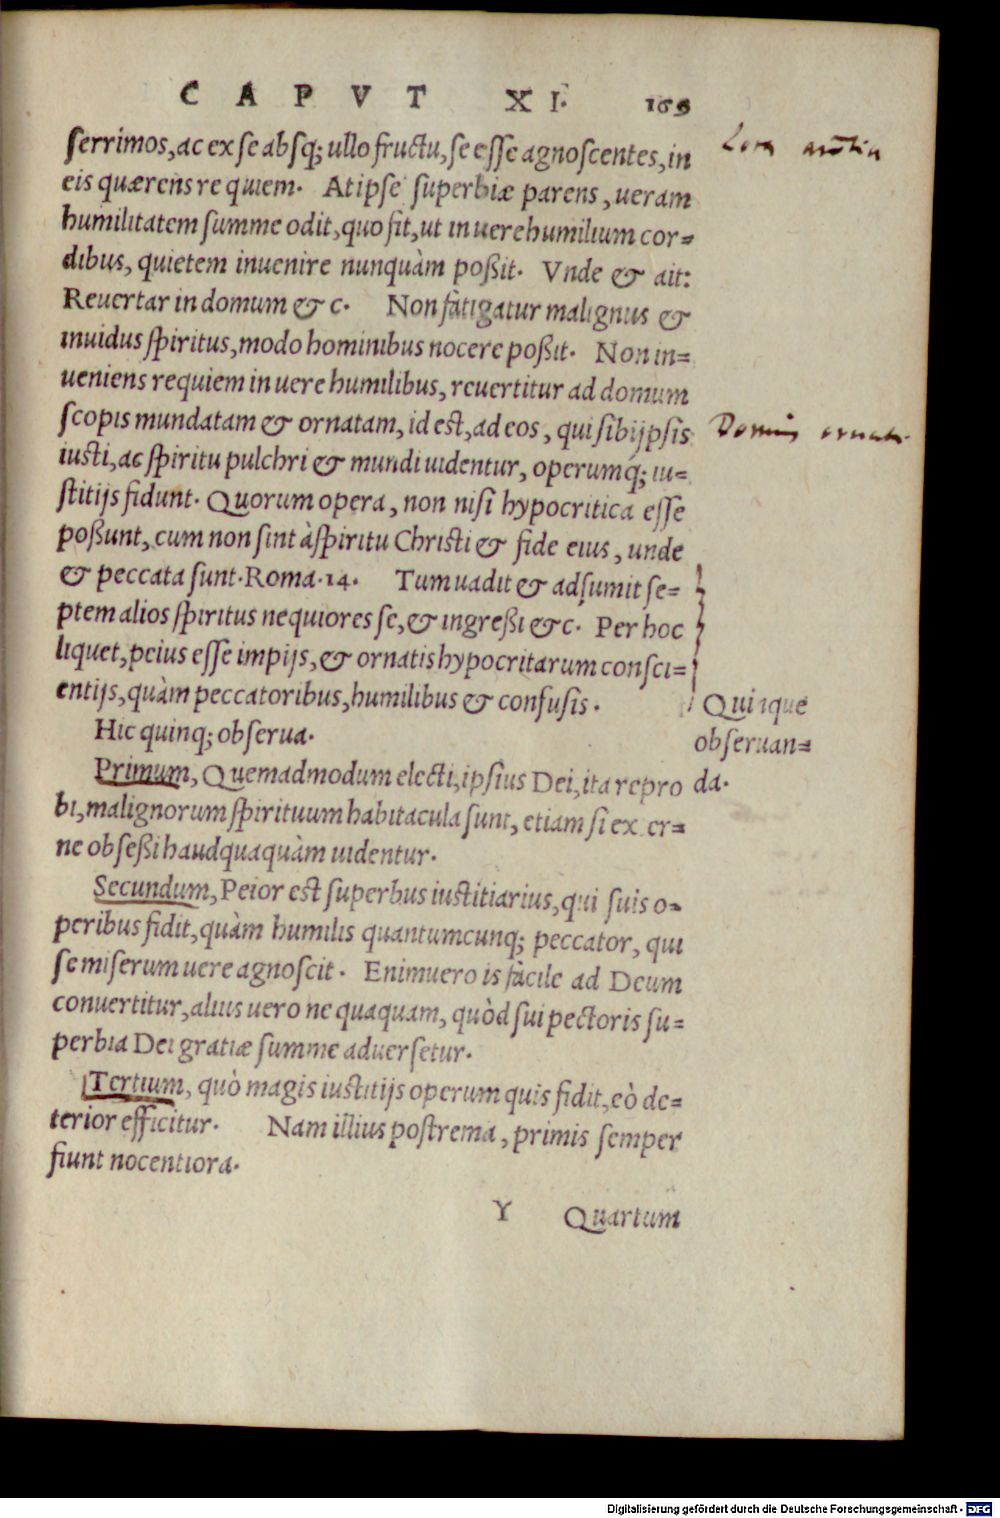 CAPVT XI. 169
serrimos, ac ex se absq; ullo fructu, se esse agnoscentes, in
eis quærens requiem. At ipse superbiæ parens, ueram
humilitatem summe odit, quo fit, ut in uere humilium cor=
dibus, quietem inuenire nunquàm poßit. Vnde & ait:
Reuertar in domum & c. Non fàtigatur malignus &
inuidus spiritus, modo hominibus nocere poßit. Non in=
ueniens requiem in uere humilibus, reuertitur ad domum
scopis mundatam & ornatam, id est, ad eos, qui sibijpsis
iusti, ac spiritu pulchri & mundi uidentur, operumq; iu=
stitijs fidunt. Quorum opera, non nisi hypocritica esse
poßunt, cum non sint à spiritu Christi & fide eius, unde
& peccata sunt. Roma. 14. Tum uadit & adsumit se=
ptem alios spiritus nequiores se, & ingreßi &c. Per hoc
liquet, peius esse impijs, & ornatis hypocritarum consci=
entijs, quàm peccatoribus, humilibus & confusis.
Quinque
obseruan=
da.
Hic quinq; obserua.
Primum, Quemadmodum electi, ipsius Dei, ita repro
bi, malignorum spirituum habitacula sunt, etiam si ex er=
ne obseßi haudquaquàm uidentur.
Secundum, Peior est superbus iustitiarius, qui suis o=
peribus fidit, quàm humilis quantumcunq; peccator, qui
se miserum uere agnoscit. Enimuero is fàcile ad Deum
conuertitur, alius uero ne quaquam, quòd sui pectoris su=
perbia Dei gratiæ summe aduersetur.
Tertium, quò magis iustitijs operum quis fidit, eò de=
terior efficitur. Nam illius postrema, primis semper
fiunt nocentiora.
Y Quartum
Digitalisierung gefördert durch die Deutsche Forschungsgemeinschaft - DFG